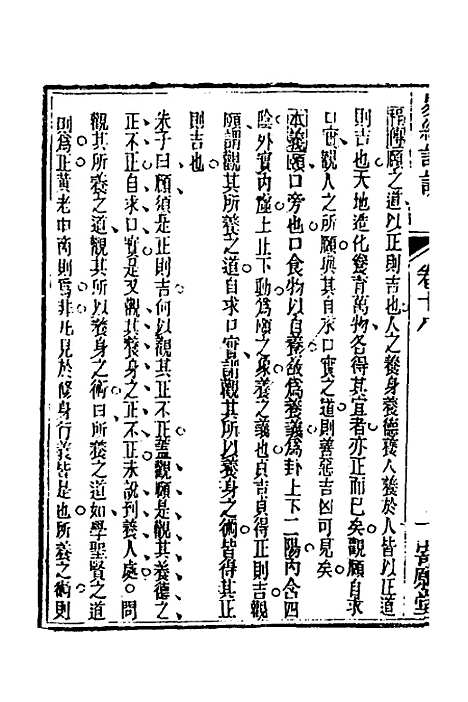 卷十八
程傳頤之道以正則吉也人之養身養德養人養於人皆以正道
則吉也天地造化養育萬物各得其宜者亦正而已矣觀頤自求
口實觀人之所頤與其自求口實之道則善惡吉凶可見矣
本義頤口旁也口食物以自養故爲養義爲卦上下二陽內含四
陰外實內虛上止下動爲頤之象養之義也貞吉占得正則吉觀
頤謂觀其所養之道自求口實謂觀其所以養身之術皆得其正
則吉也
朱子曰頤須是正則吉何以觀其正不正蓋觀頤是觀其養德之
正不正自求口實是又觀其養身之正不正未說到養人處問
觀其所養之道觀其所以養身之術曰所養之道如學聖賢之道
則爲正黃老申商則爲非凡見於修身行義皆是也所養之術則